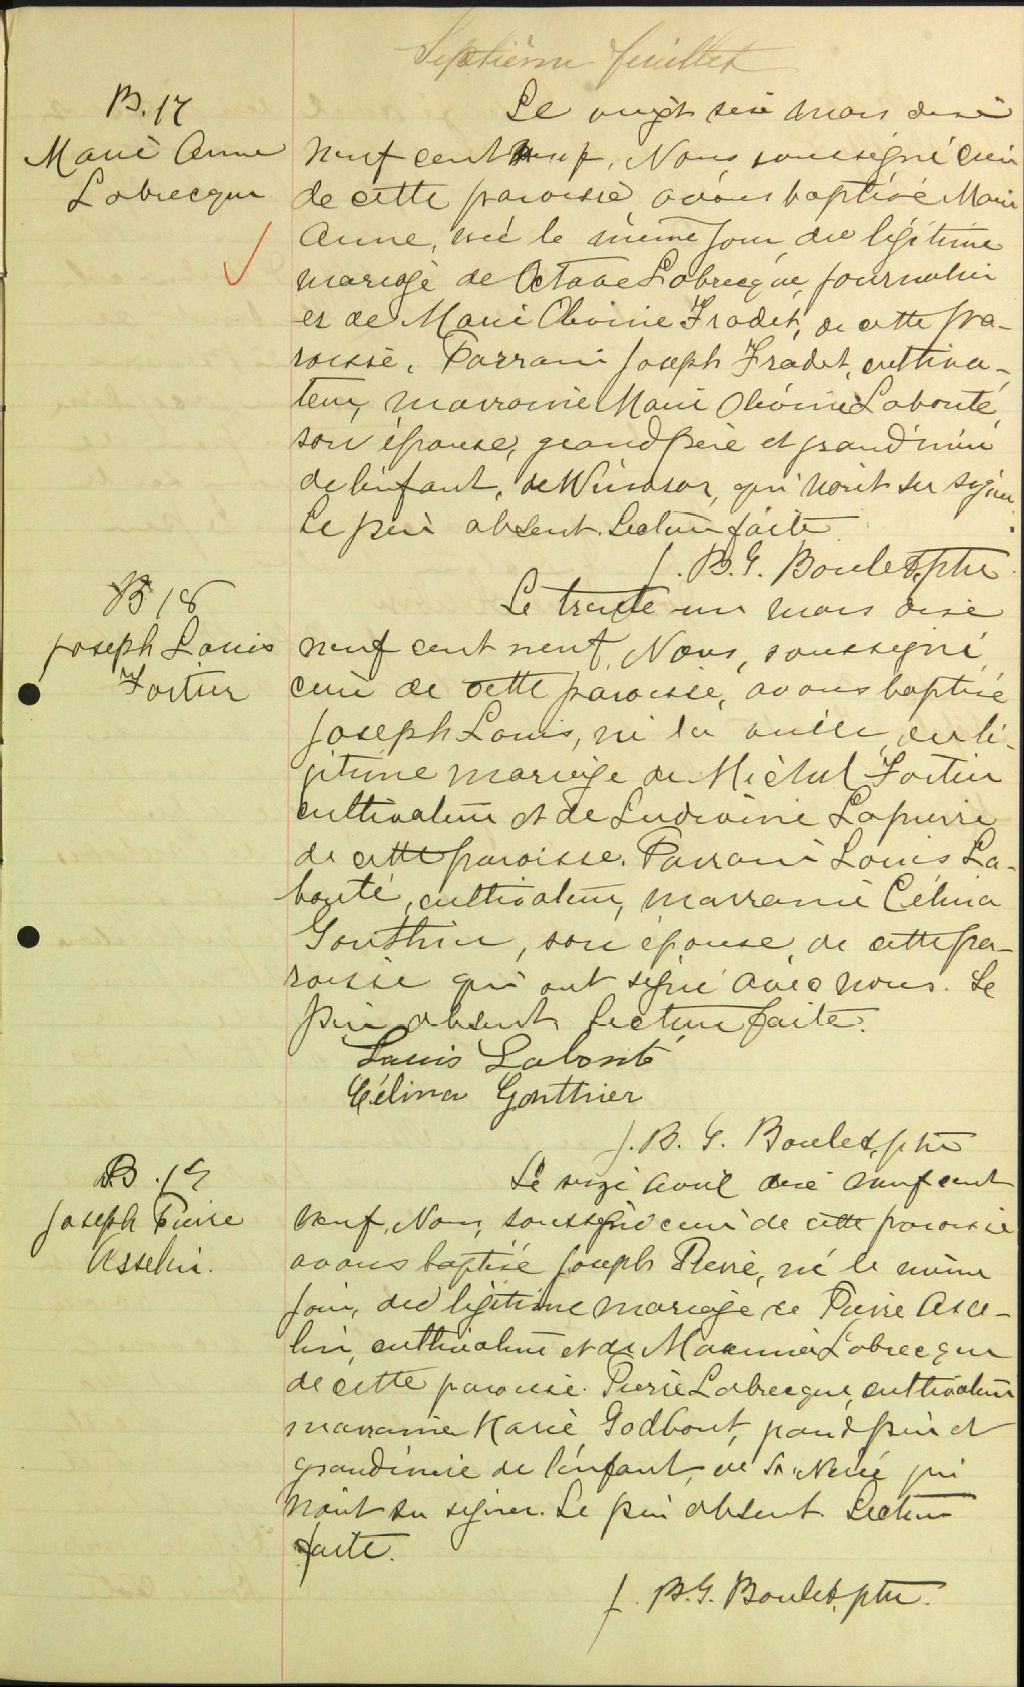 Septième feuillet
B. 17
Marie Anne
Labrecque
Le vingt six mars
neuf cent neuf, Nous soussigné curé
de cette paroisse avons baptisé Marie
Anne, née le même jour du légitime
mariage de Octave Labrecque, journalier
et de Marie Olivine Fradet, de cette pa-
roisse. Parrain Joseph Fradet, cultiva-
teur, marraine Marie Labonté
son épouse, grandpère et grand'mère
de l'enfant, de Windsor, qui n'ont su signer
Le père absent. Lecture faite
J. B. G. Boulet, ptre
B 18
Joseph Louis
Fortier
Le trente un mars
neuf cent neuf, Nous, soussigné
curé de cette paroisse, avons baptisé
Joseph Louis, né la veille, du lé-
gitime mariage de Michel Fortier
cultivateur et de Ludivine Lapierre
de cette paroisse. Parrain Louis La-
bonté, cultivateur, marraine Célina
Gonthier, son épouse, de cette pa-
roisse qui ont signé avec nous. Le
père absent Lecture faite.
Louis Labonté
Célina Gonthier
J. B. G. Boulet, ptre
B. 19
Joseph Pierre
Asselin.
Le avril neuf cent
neuf, Nous, soussigné curé de cette paroisse
avons baptisé Joseph Pierre, né le même
jour, du légitime mariage de Pierre Asse-
lin, cultivateur et de Labrecque
de cette paroisse. Pierre Labrecque, cultivateur
marraine Marie Godbout, grandpère et
grand'mère de l'enfant, de St. Nérée qui
n'ont su signer. Le père absent. Lecture
faite.
J. B. G. Boulet, ptre.